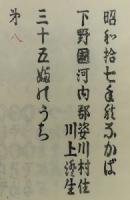 昭和拾七年秋なかば
下野國河内郡姿川村住
川上澄生
三十五部のうち
第八